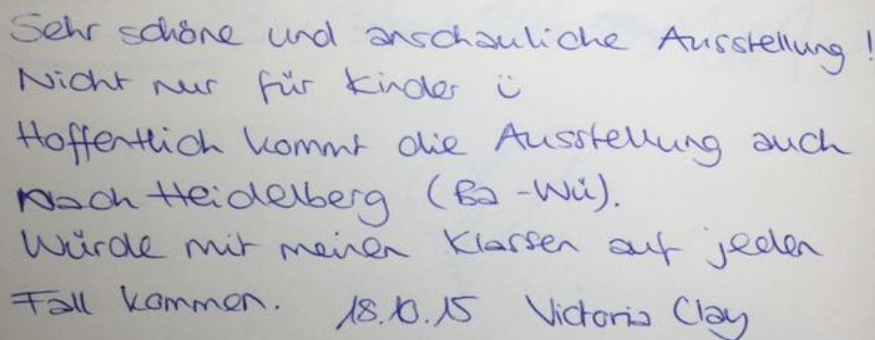 Sehr schöne und anschauliche Ausstellung !
Nicht nur für Kinder ü
Hoffentlich kommt die Ausstellung auch
Nach Heidelberg (Ba-Wü).
Würde mit meinen Klassen auf jeden
Fall kommen. 18.10.15 Victoria Clay